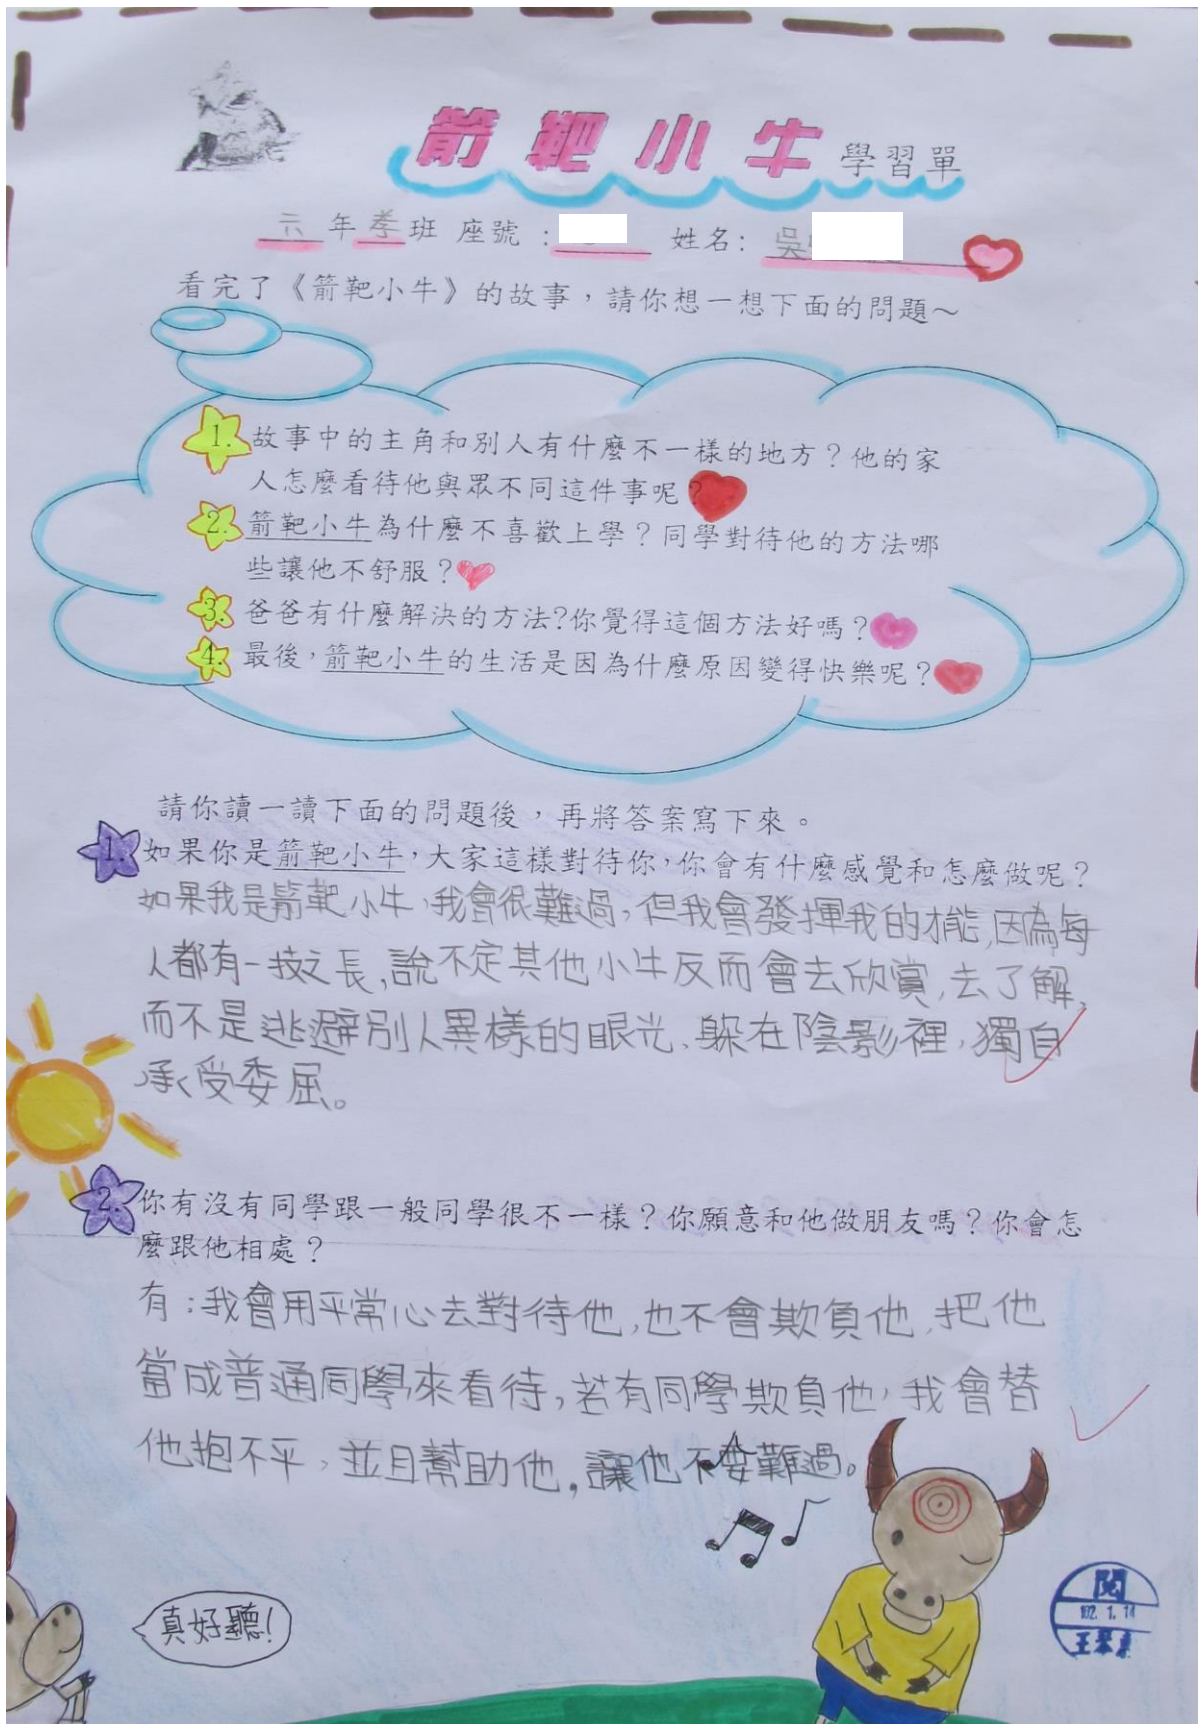 箭靶小牛學習單
六年孝班 座號: 姓名: 吳
看完了《箭靶小牛》的故事,請你想一想下面的問題~
1. 故事中的主角和別人有什麼不一樣的地方?他的家
人怎麼看待他與眾不同這件事呢?
2. 箭靶小牛為什麼不喜歡上學?同學對待他的方法哪
些讓他不舒服?
3. 爸爸有什麼解決的方法?你覺得這個方法好嗎?
4. 最後,箭靶小牛的生活是因為什麼原因變得快樂呢?
請你讀一讀下面的問題後,再將答案寫下來。
1. 如果你是箭靶小牛,大家這樣對待你,你會有什麼感覺和怎麼做呢?
如果我是箭靶小牛,我會很難過,但我會發揮我的才能,因為每
人都有一技之長,說不定其他小牛反而會去欣賞,去了解,
而不是逃避別人異樣的眼光、躲在陰影裡,獨自
承受委屈。
2. 你有沒有同學跟一般同學很不一樣?你願意和他做朋友嗎?你會怎
麼跟他相處?
有;我會用平常心去對待他,也不會欺負他,把他
當成普通同學來看待,若有同學欺負他,我會替
他抱不平,並且幫助他。讓他不要難過。
真好聽!
閱
102.1.14